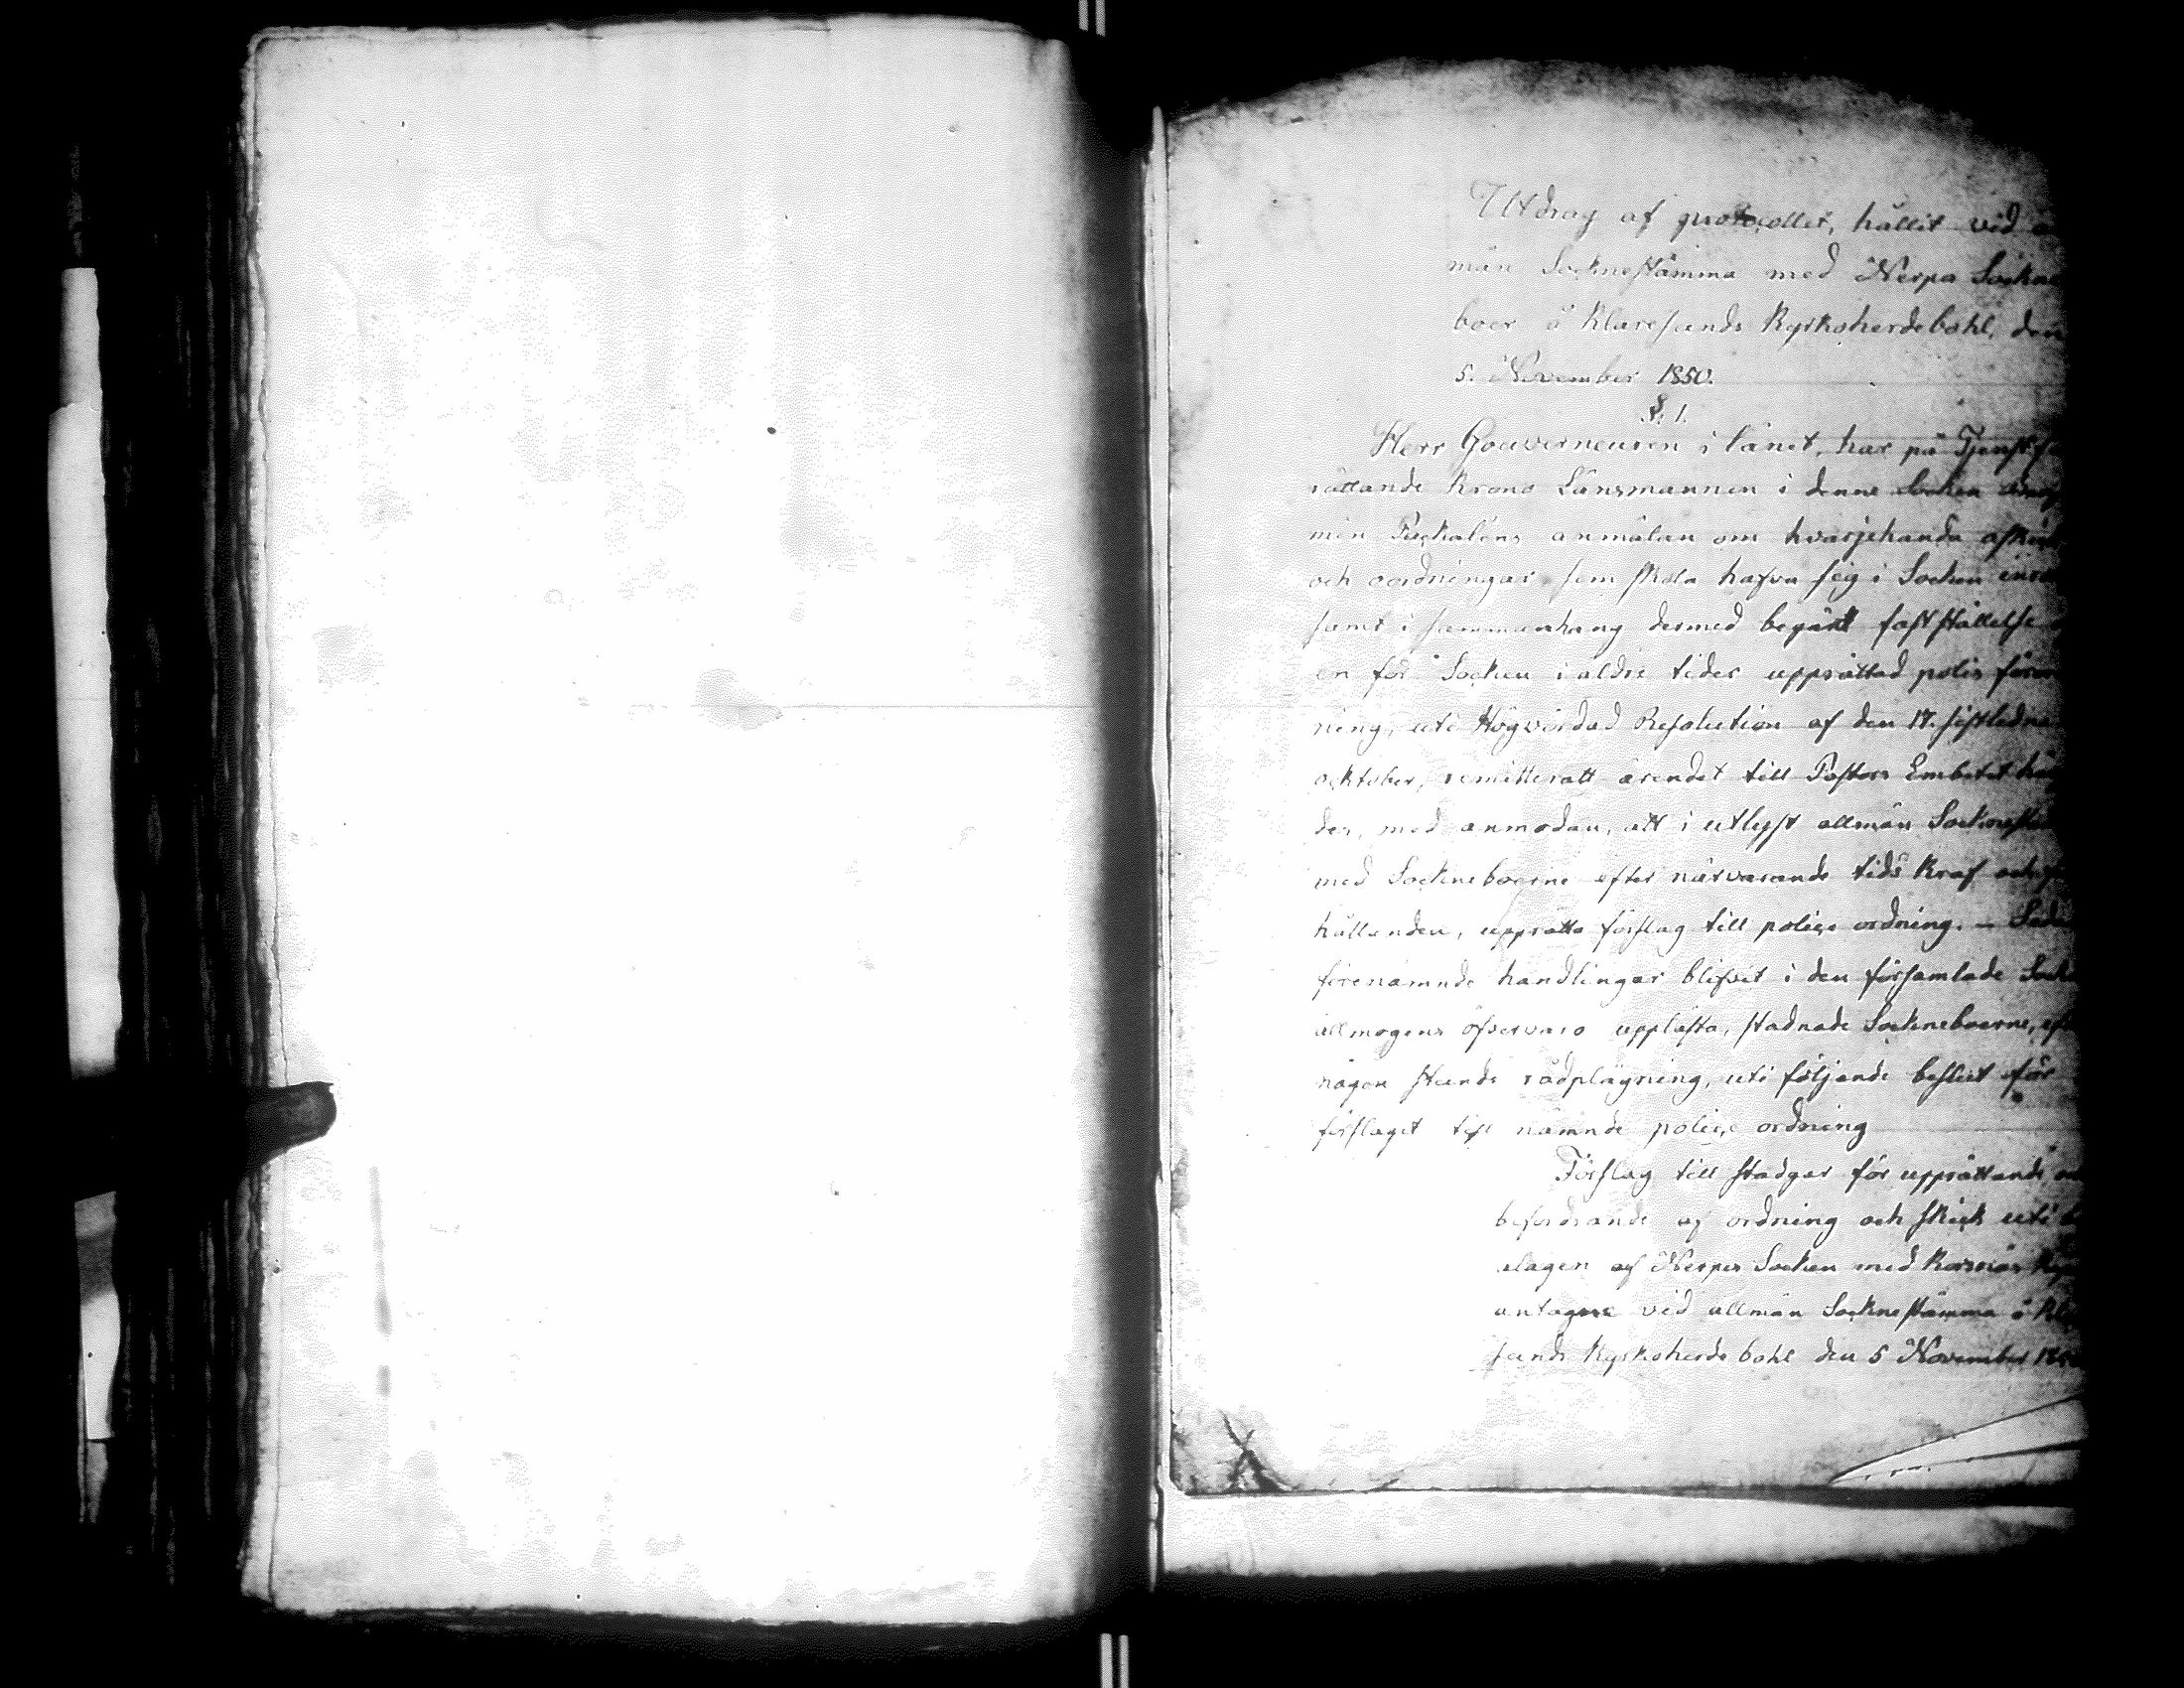 Utdrag af protocollet, hållit vid
män Socknestämma med Nerpes Sockne
boer å Klaresunds Kyrkoherdebohl, den
5. November 1850.
§. 1.
Herr Gouverneuren i länet, har på Tjenstf
rättande Krono Länsmannen i denne Socken
min anmälan om hvarjehanda
och oordningar som skola hafva sig i Socken
samt i sammanhang dermed begärt fastställelse
en för Socken i äldre tider upprättad polis föror
ning, uti Högvördad Resolution af den 17. sistledne
ocktober, remitteratt ärendet till Pastors Embetet
der, med anmodan, att i utlyst allmän Socknestä
med Sockneboerne efter närvarande tids kraf och f
hållanden, upprätta förslag till polise ordning. – Seda
förenämnde handlingar blifvit i den församlade Socke
allmogens öfvervaro upplästa, stadnade Sockneboerne, eft
någon stunds rådplägning, uti följande beslut för
förslaget till nämnde polise ordning
Förslag till stadgar för upprättande,
befordrande af ordning och skick uti
elagen af Nerpes Socken med Korsnäs
antagne vid allmän Sockne stämma å Kla
sunds Kyrkoherde bohl den 5 November 185